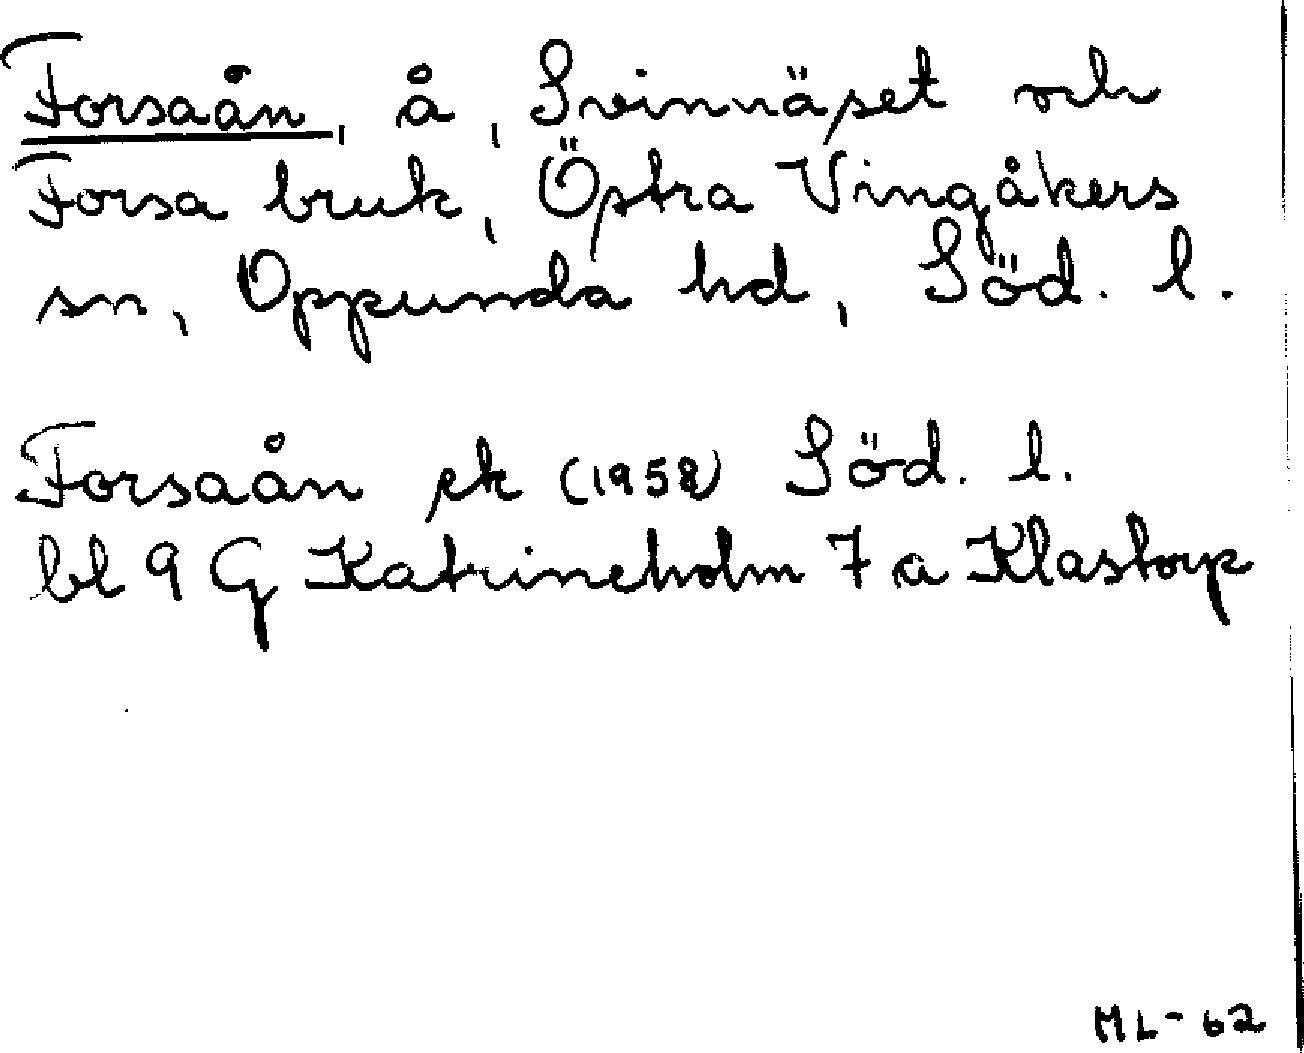 Forsaån, å, Svinnäset och
Forsa bruk, Östra Vingåkers
sn, Oppunda hd, Söd. l.
Forsaån ek (1958) Söd. l.
bl 9 G Katrineholm 7 a Klastorp
ML-62